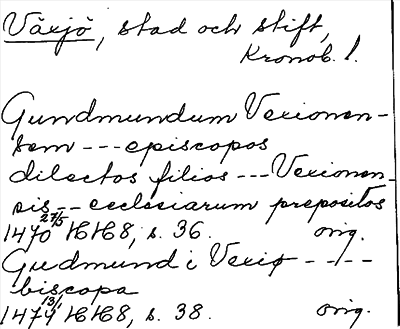 Växjö, stad och stift,
Kronob. l.
Gundmundum Vexionen-
sem --- episcopos
dilectos filios --- Vexionen-
sis -- ecclesiarum prepositos
1470 27/5 HH8, s. 36. orig.
Gudmund i Vexiø - - - -
biscopa
1474 13/1 HH8, s. 38. orig.